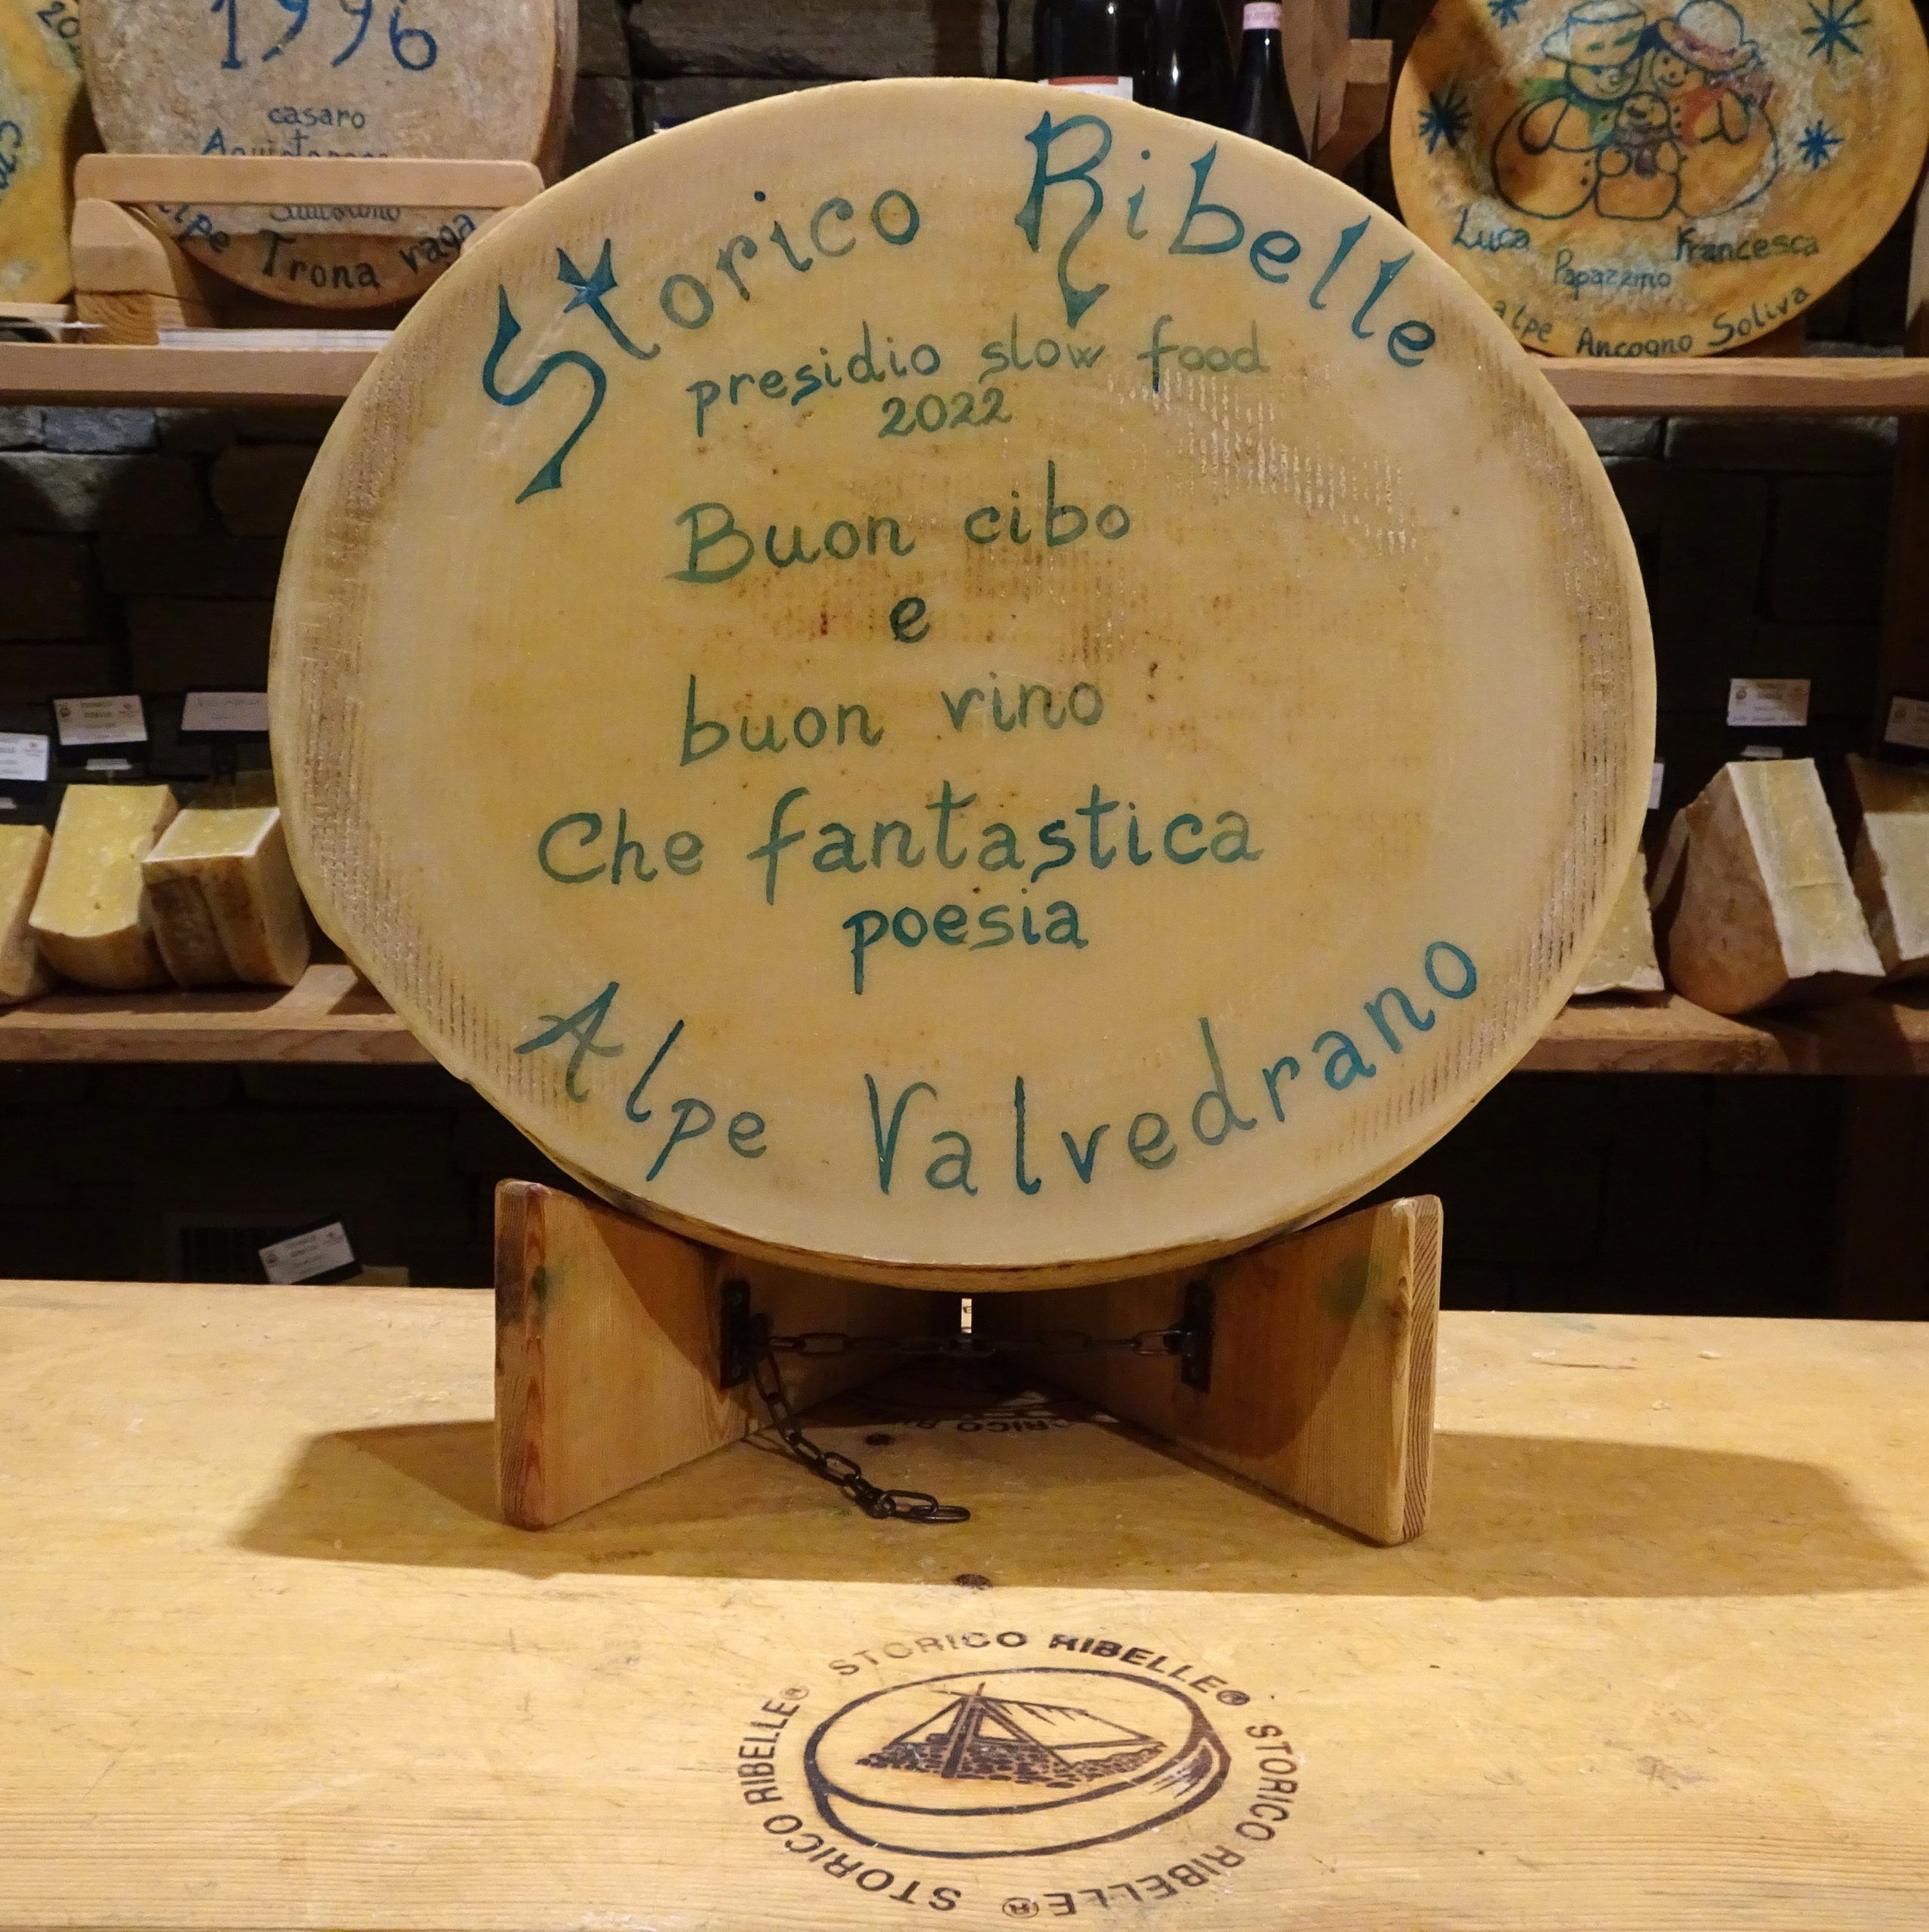 1996
casaro
Trona vaga
Luca Francesca
Papazzino
alpe Ancogno Soliva
Storico Ribelle
presidio slow food
2022
Buon cibo
e
buon vino
Che fantastica
poesia
Alpe Valvedrano
STORICO RIBELLE® STORICO RIBELLE® STORICO RIBELLE®